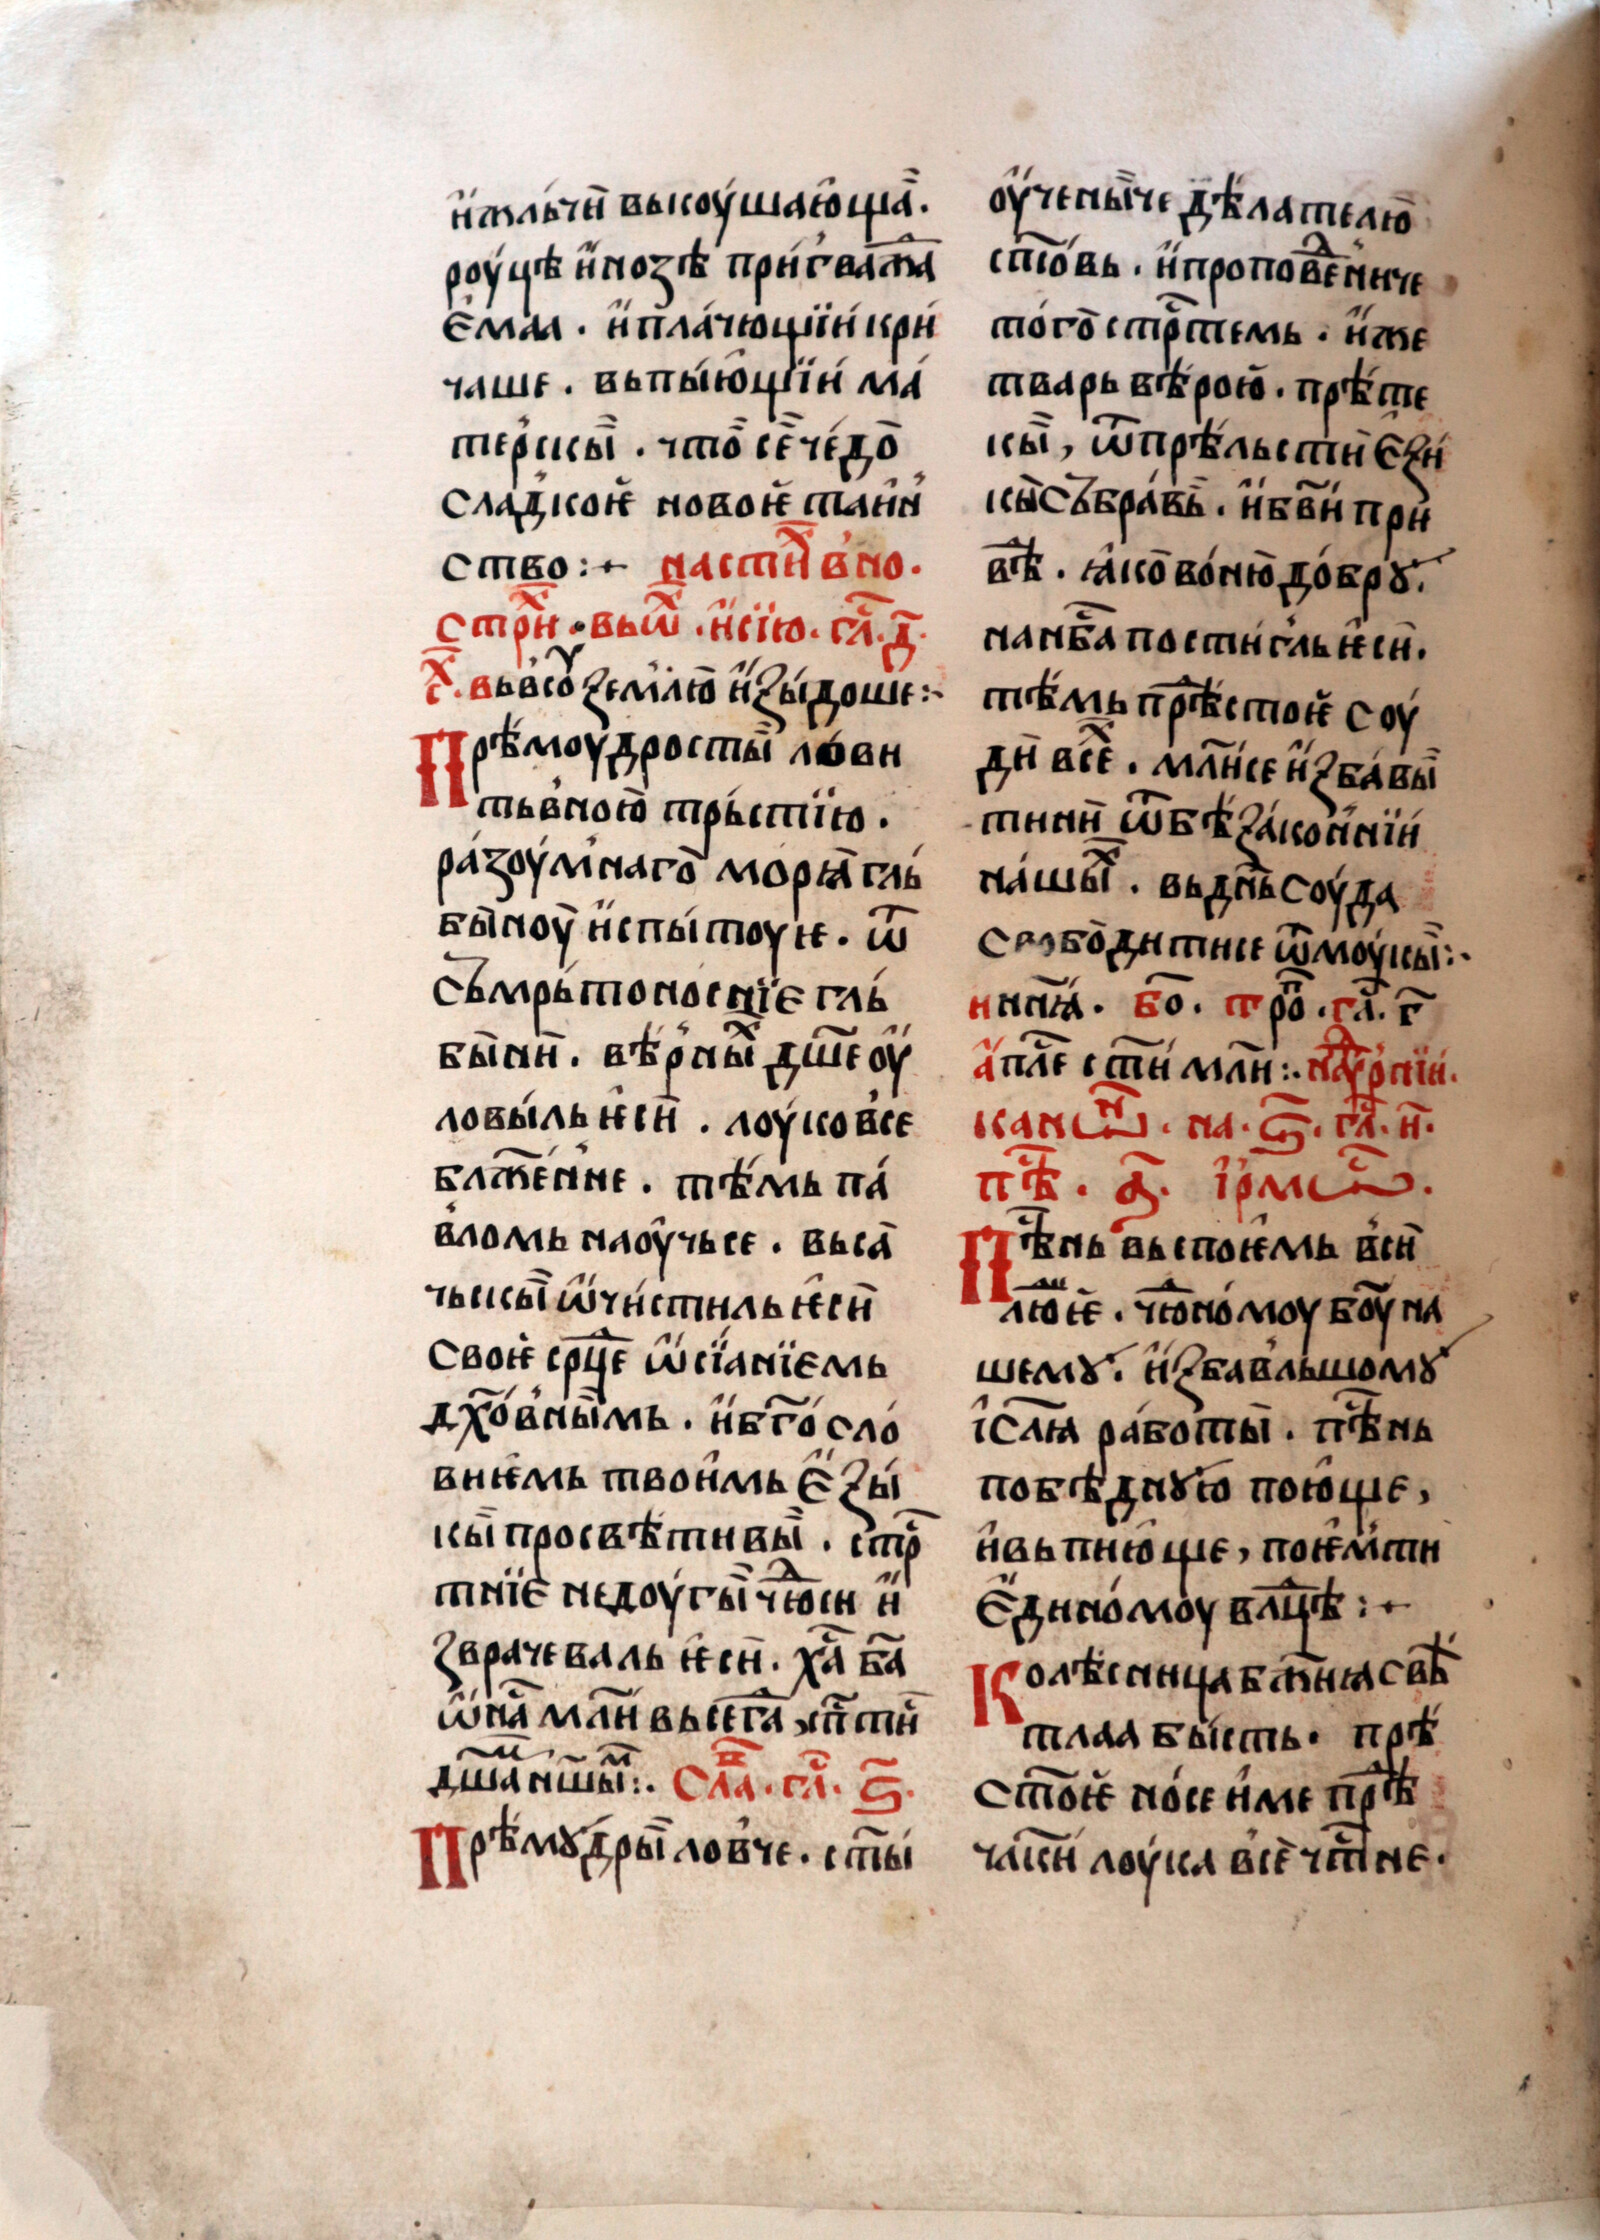 и҆жльчи высоу́шаю҆ща̑.
роу́цѣ и҆нозѣ при́гважⷣа
є҆маа. и҆пла́чющїи́ кри
чаше. вьпы́ю҆щїи́ ма́
те́рскы. что̀ се̏ че́до̀
сла́дкоѥ новоѥ та́ин
ство :+ настиⷯ в́но.
стрⷯи. вьѿⷯ. и҆сїю. гл҃а. д҃.
гⷯ. вьв́соу ꙁемлю̀ и҆ꙁы́доше :
Прѣмоу́дросты̏ ло́ви
тьв́ною̀ тры́стїю.
ра́зоу́мнаго̀ мо́рꙗ гль
бы̀ноу̏ и҆спы́тоуѥ. ѿ
съ́мрьтоноснїє гль́
бы̀ни. вѣ́рны̏ⷯ дш҃е оу҆
ловы́ль ѥ҆си. лоу́ко все
блаже́нне. тѣ́мь па́
в́ломь наоу҆чьсе. вьса̀
чьскы̏ ѡ҆чи́стиль ѥ҆си
своѥ срⷣце ѡ҆сїа҆нїємь
дх҃о́вны̏мь. и҆бг҃о́сло́
виѥмь твоимь є҆ꙁы́
кы̏ просвѣ́тивы̏. стрⷭ
тнїє недоу́гы̏ чл҃ю́си и҆
ꙁврачеваль ѥ҆си. хⷭ҃а ба҃
ѡ҆наⷭ мл҃и вьсегⷣа, сп҃сти
дш҃аⷨ нш҃ы̏ⷨ :. слаⷡ҃. гл҃а. ѕ҃.
Прѣмꙋ́дры̏ ло́вче. ст҃ы́
оу҆чены́че дѣ́лателю̀
сп҃со́вь. и҆пропове́дниче
то́го̀ стрⷭтемь. и҆же
тварь вѣ́рою. прѣ́те
кы̏, ѿпрѣльсти є҆ꙁи
кы̏ съ́бра́вь̀. и҆бв҃и при
вⷣѣ. ꙗко̀ во́ню̀ до́брꙋ.
нанб҃са пости́гль ѥ҆си.
тѣ́мь прⷣѣстоѥ соу
ди всⷯе. мл҃исе и҆ꙁба́вы̏
тини ѿбѣꙁа́ко́ннїи
на́шы̏ⷯ. вьдн҃ь соу́да
свобо́дитисе ѿмоу́кы̏ :.
нн҃ꙗ. бо҃. тро̀ⷫ. гл҃а. г҃
ап҃ⷭле ст҃и мл҃и :. наоу҆трⷩїи.
канѡⷩ. на. ѕ҃. гл҃а. и҃.
пѣⷭ. а҃. і҆рмѡⷭ.
Пѣⷭнь вьспоѥмь вси
лю́дїѥ. чю́дно́моу бо҃у на
шемꙋ. и҆ꙁбав́льшомꙋ
і҆сл҃ꙗ ра́боты̏. пѣⷭнь
побѣ́днꙋю пою҆ще,
и҆вьпию҆ще, поѥмти
є҆дино́моу влⷣцѣ :+
Колѣсница бж҃иꙗ свѣ
тлаа бысть. прѣ
ст҃оѥ но́се и҆ме прⷣѣ
ча́ки лоу́ка все̏чт҃не.